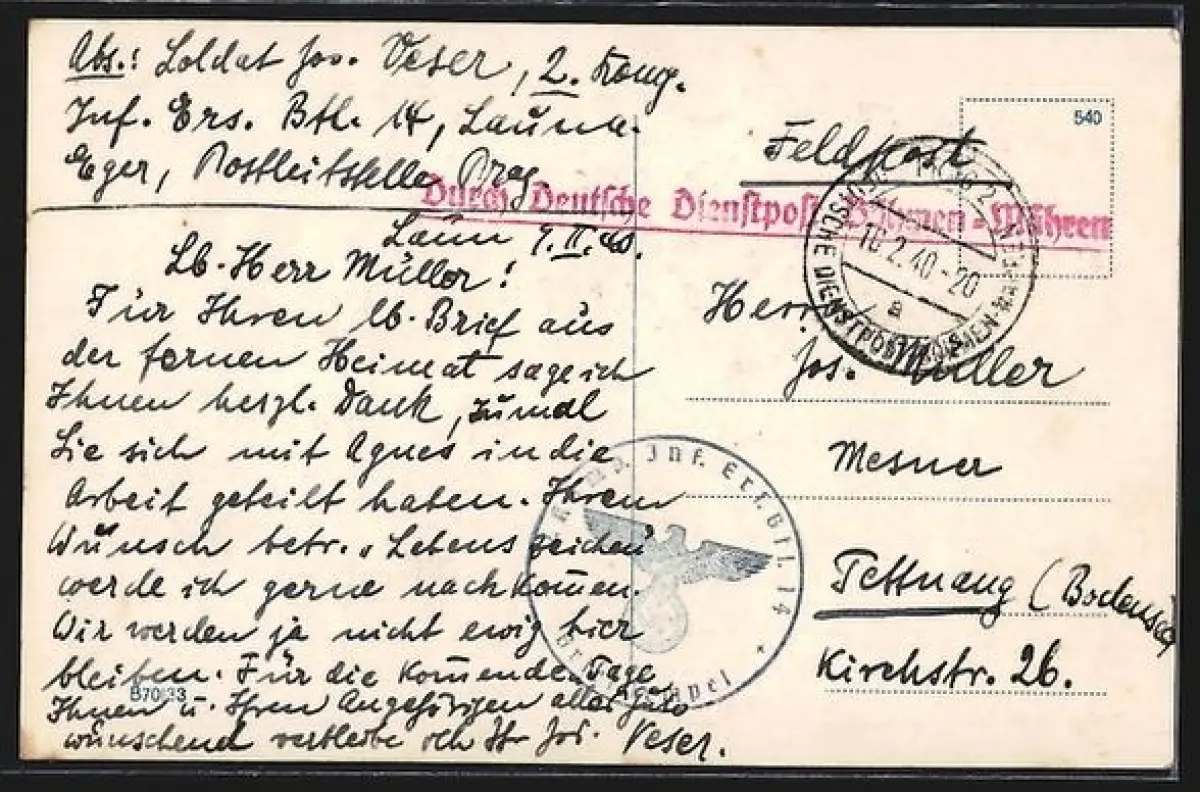 Abs.: Soldat Jos. Veser, 2. Komp.
Inf. Ers. Btl. 14, Laun a.
Eger, Postleitstelle Prag
Laun 9.II.40.
Lb. Herr Müller!
Für Ihren lb. Brief aus
der fernen Heimat sage ich
Ihnen herzl. Dank, zumal
Sie sich mit Agnes in die
Arbeit geteilt haben. Ihrem
Wunsch betr. „Lebenszeichen"
werde ich gerne nachkom̄en.
Wir werden ja nicht ewig hier
bleiben. Für die kom̄enden Tage
Ihnen u. Ihren Angehörigen alles Gute
wünschend verbleibe ich Ihr Jos. Veser.
B70 33
540
Feldpost
Durch Deutsche Dienstpost Böhmen-Mähren
DEUTSCHE DIENSTPOST BÖHMEN-MÄHREN
10.2.40-20
a
Herrn
Jos. Müller
Mesner
Tettnang (Bodensee)
Kirchstr. 26.
Inf. Ers. Btl. 14